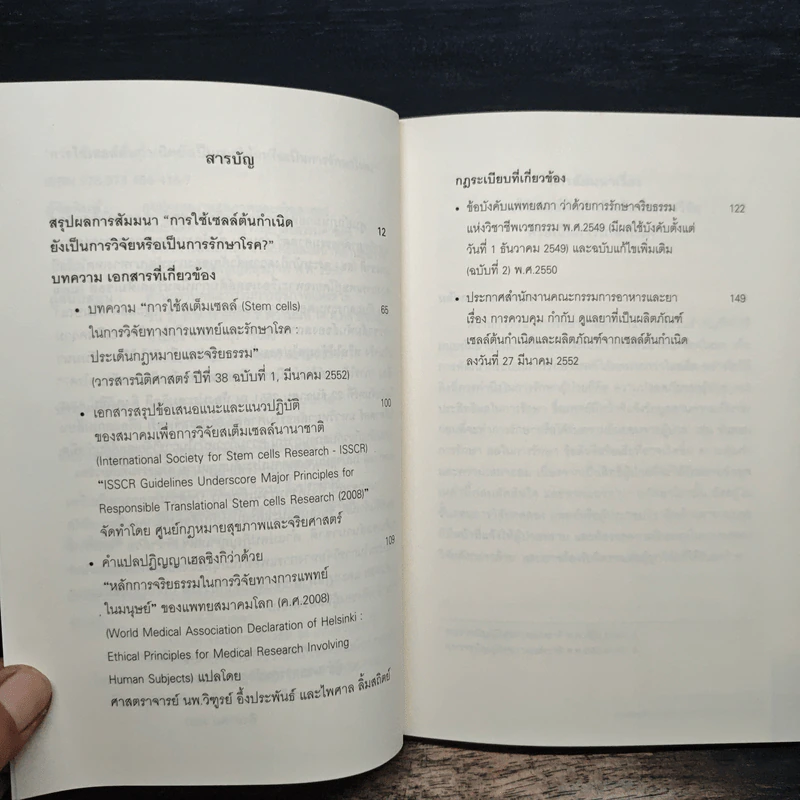 สารบัญ
สรุปผลการสัมมนา “การใช้เซลล์ต้นกำเนิด
ยังเป็นการวิจัยหรือเป็นการรักษาโรค?” 12
บทความ เอกสารที่เกี่ยวข้อง
• บทความ “การใช้สเต็มเซลล์ (Stem cells) 65
ในการวิจัยทางการแพทย์และรักษาโรค :
ประเด็นกฎหมายและจริยธรรม”
(วารสารนิติศาสตร์ ปีที่ 38 ฉบับที่ 1, มีนาคม 2552)
• เอกสารสรุปข้อเสนอแนะและแนวปฏิบัติ 100
ของสมาคมเพื่อการวิจัยสเต็มเซลล์นานาชาติ
(International Society for Stem cells Research - ISSCR)
“ISSCR Guidelines Underscore Major Principles for
Responsible Translational Stem cells Research (2008)”
จัดทำโดย ศูนย์กฎหมายสุขภาพและจริยศาสตร์
• คำแปลปฏิญญาเฮลซิงกิว่าด้วย 109
“หลักการจริยธรรมในการวิจัยทางการแพทย์
ในมนุษย์” ของแพทยสมาคมโลก (ค.ศ.2008)
(World Medical Association Declaration of Helsinki :
Ethical Principles for Medical Research Involving
Human Subjects) แปลโดย
ศาสตราจารย์ นพ.วิฑูรย์ อึ้งประพันธ์ และไพศาล ลิ้มสถิตย์
กฎระเบียบที่เกี่ยวข้อง
• ข้อบังคับแพทยสภา ว่าด้วยการรักษาจริยธรรม 122
แห่งวิชาชีพเวชกรรม พ.ศ.2549 (มีผลใช้บังคับตั้งแต่
วันที่ 1 ธันวาคม 2549) และฉบับแก้ไขเพิ่มเติม
(ฉบับที่ 2) พ.ศ.2550
• ประกาศสำนักงานคณะกรรมการอาหารและยา 149
เรื่อง การควบคุม กำกับ ดูแลยาที่เป็นผลิตภัณฑ์
เซลล์ต้นกำเนิดและผลิตภัณฑ์จากเซลล์ต้นกำเนิด
ลงวันที่ 27 มีนาคม 2552